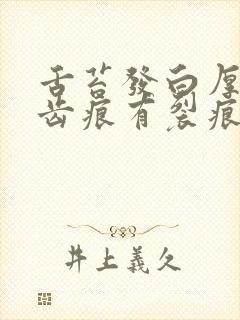 舌苔發白厚
齿痕有裂痕
井上義久